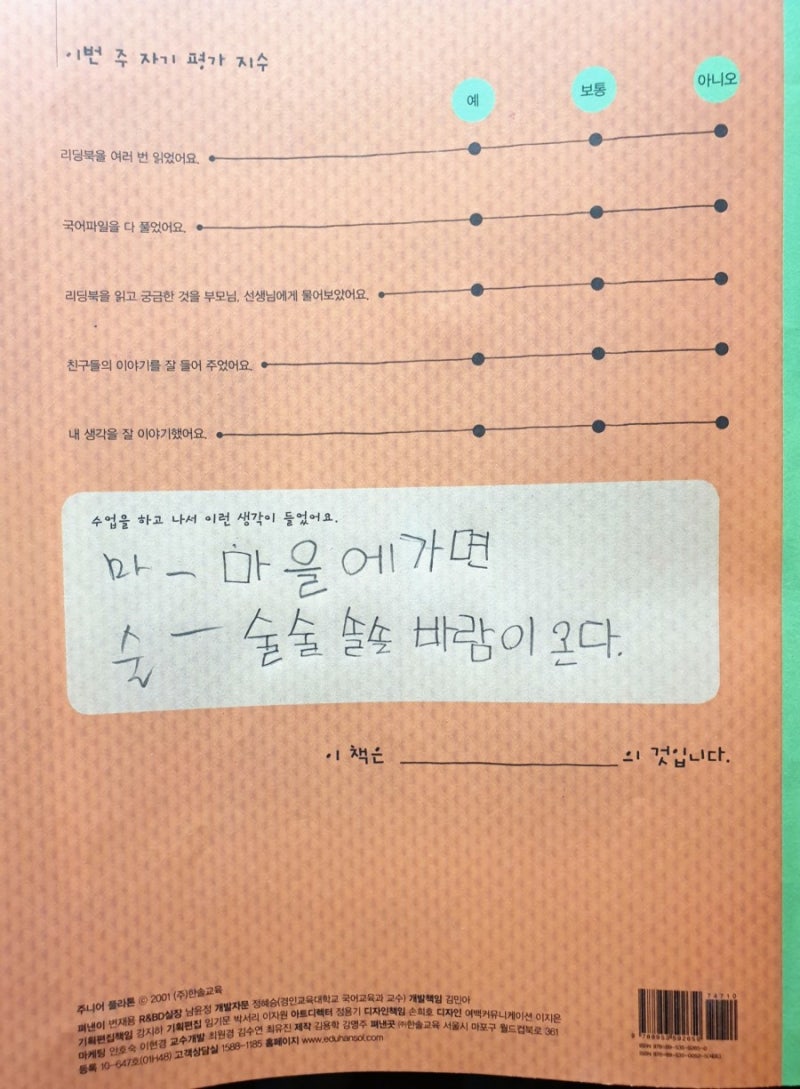 이번 주 자기 평가 지수
예 보통 아니오
리딩북을 여러 번 읽었어요.
국어파일을 다 풀었어요.
리딩북을 읽고 궁금한 것을 부모님, 선생님에게 물어보았어요.
친구들의 이야기를 잘 들어 주었어요.
내 생각을 잘 이야기했어요.
수업을 하고 나서 이런 생각이 들었어요.
마 - 마을에가면
술 - 술술 솔솔 바람이 온다.
이 책은 의 것입니다.
주니어 플라톤 © 2001 (주)한솔교육
펴낸이 변재용 R&BD실장 남윤정 개발자문 정혜승(경인교육대학교 국어교육과 교수) 개발책임 김민아
기획편집책임 강지하 기획편집 임기문 박서리 이자원 아트디렉터 정용기 디자인책임 손희호 디자인 여백커뮤니케이션 이지은
마케팅 안호숙 이현경 교수개발 최원경 김수연 최유진 제작 김용학 강명주 펴낸곳 ㈜한솔교육 서울시 마포구 월드컵북로 361
등록 10-647호(01H48) 고객상담실 1588-1185 홈페이지 www.eduhansol.com
74710